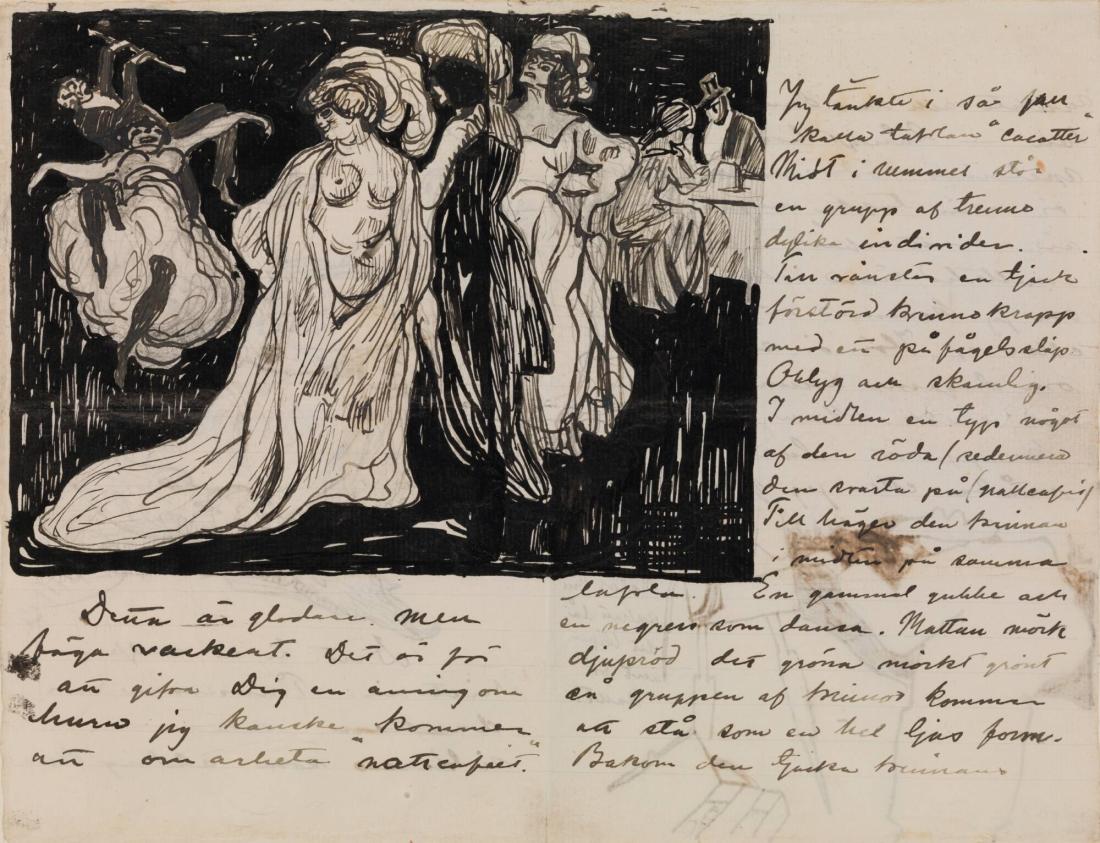 Denna är gladare. men
vackert. Det är för
att gifva Dig en aning om
huru jag kanske kommer
att om arbeta "nattcafeet".
Jag tänkte i så fall
kalla taflan "cocotter"
Midt i rummet står
en grupp af trenne
dylika individer.
Till vänster en tjock
förstörd kvinnokropp
med ett påfågelssläp
Oblyg och skamlig.
I midten en typ något
af den röda (sedermera
den svarta på (nattcafeet)
Till höger den kvinnan
i midten på samma
tafla. En gammal gubbe och
en negress som dansa. Mattan mörk
djupröd det gröna mörkt grönt
och gruppen af kvinnor kommer
att stå som en hel ljus form.
Bakom den tjocka kvinnans